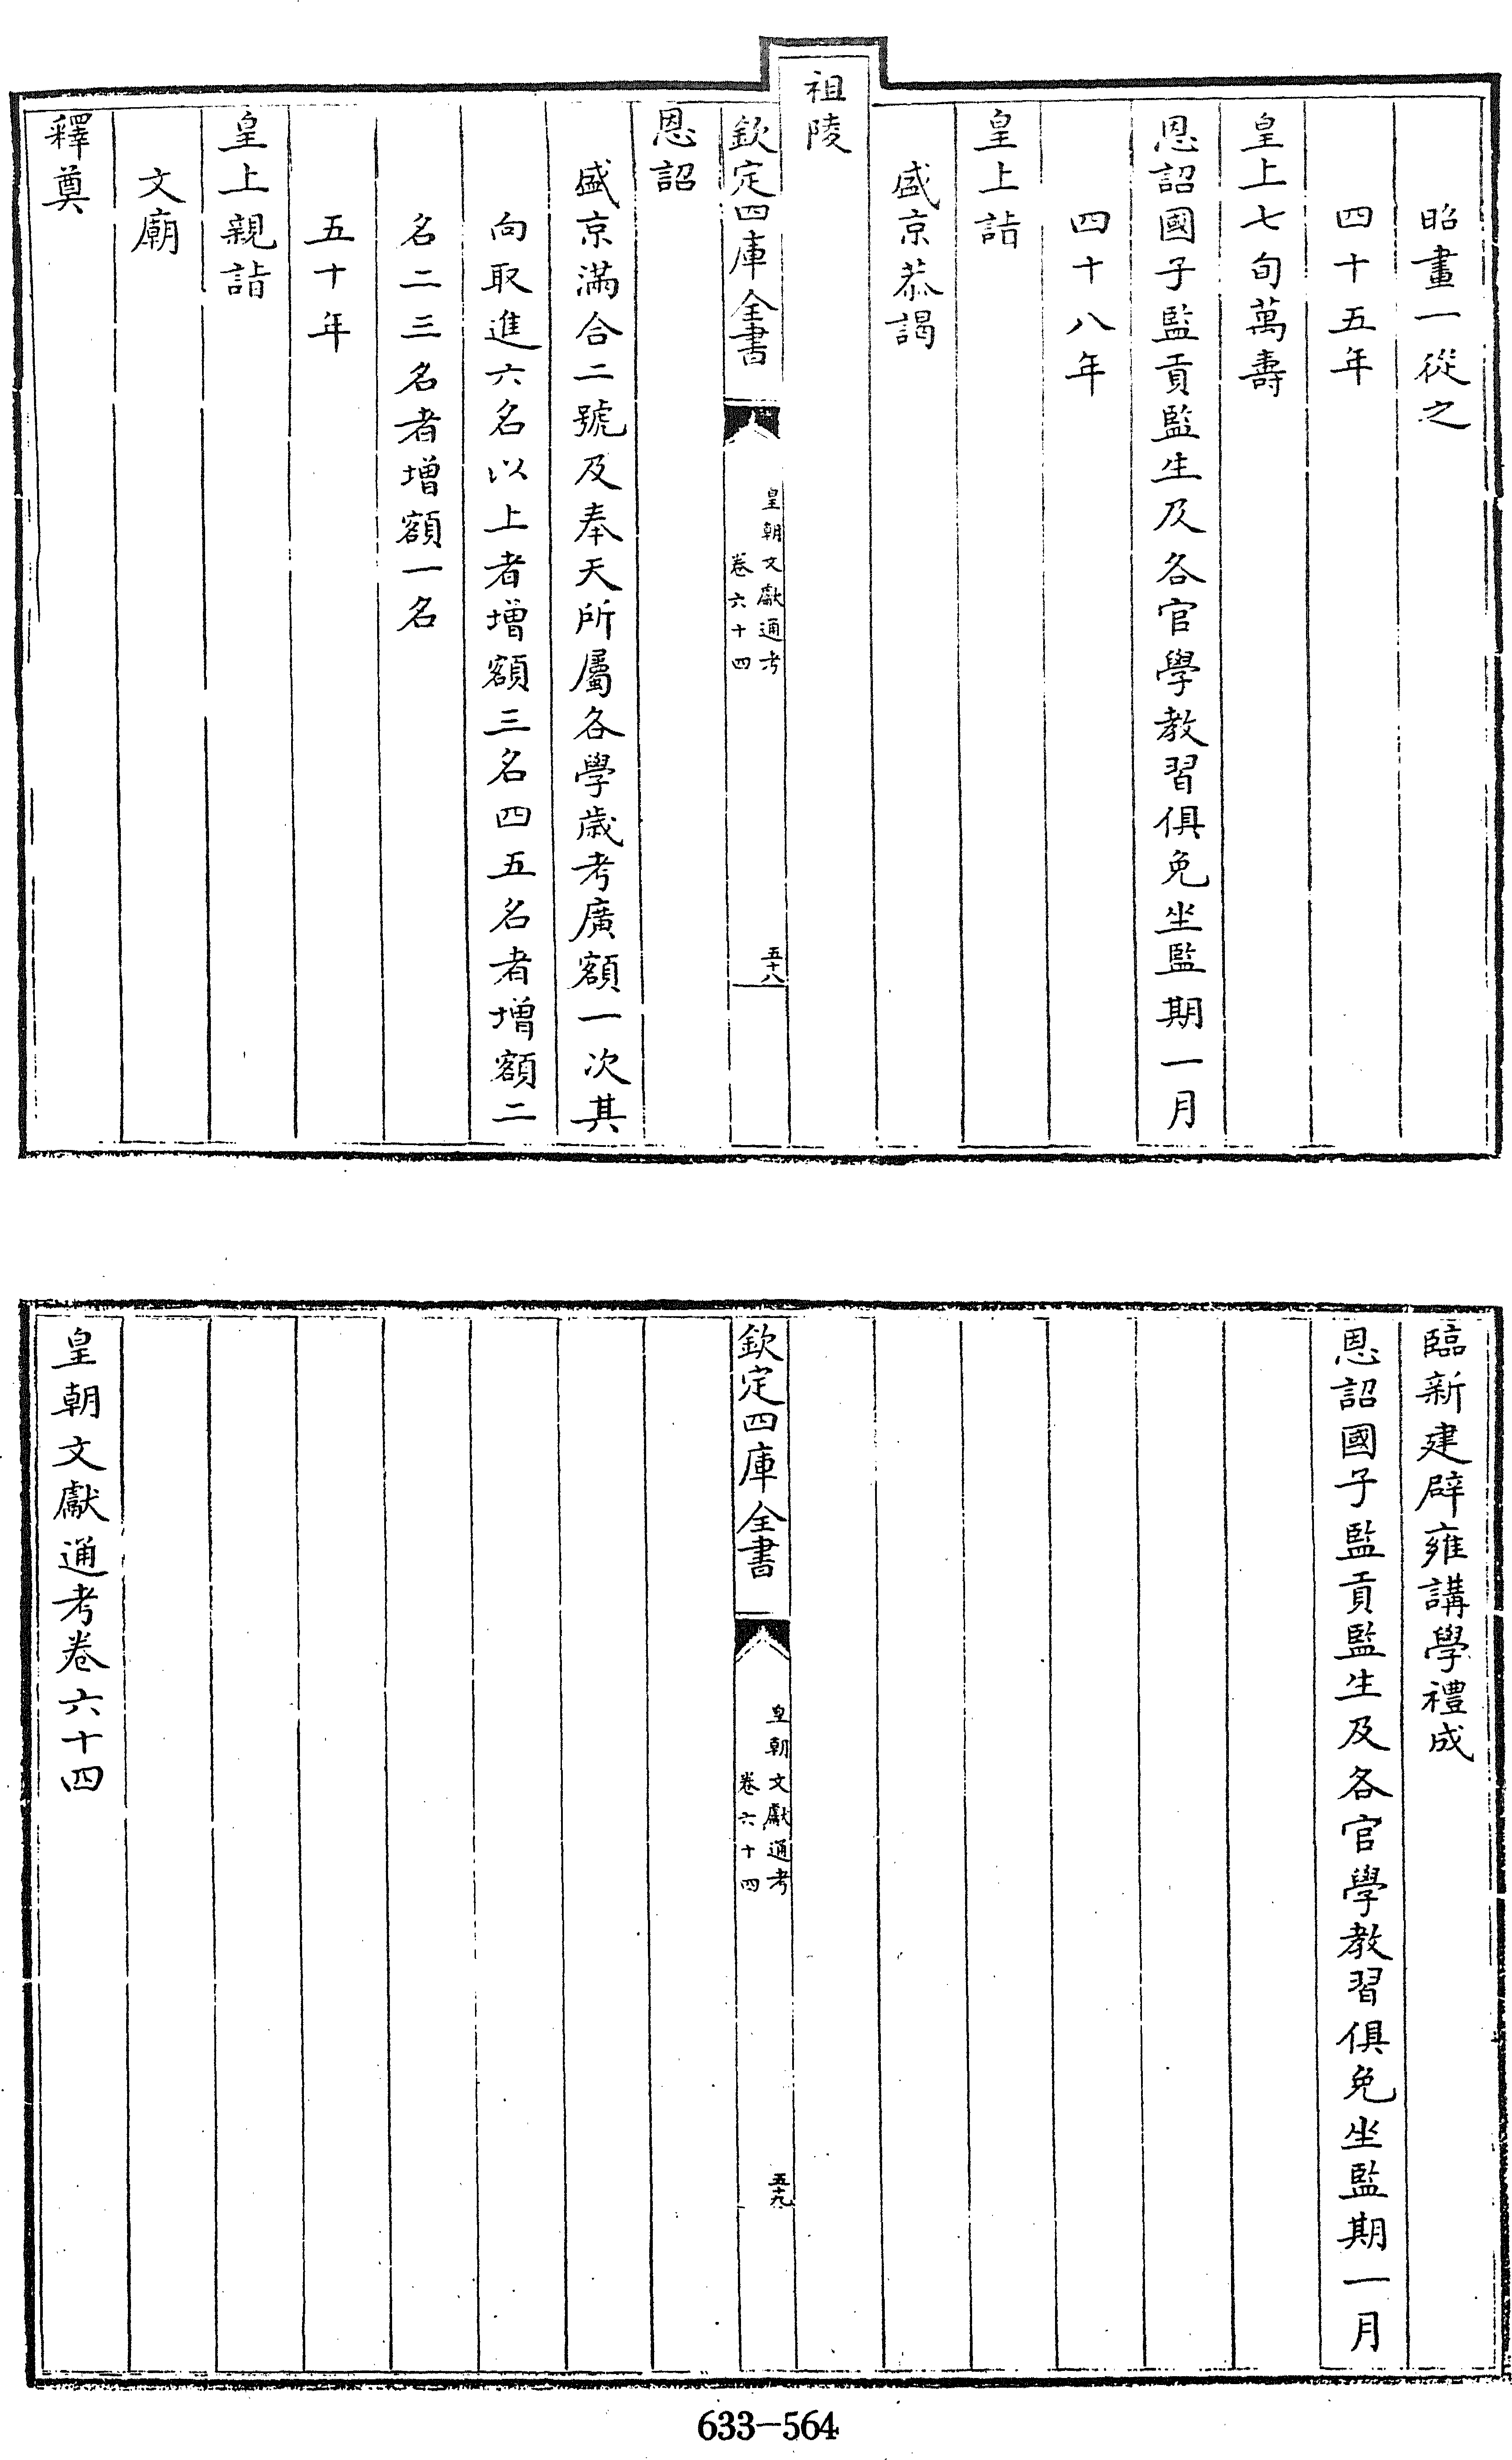 昭畫一從之
四十五年
皇上七旬萬壽
恩詔國子監貢監生及各官學教習俱免坐監期一月
四十八年
皇上詣
盛京恭謁
祖陵
欽定四庫全書
皇朝文獻通考
卷六十四
五十八
恩詔
盛京滿合二號及奉天所屬各學歲考廣額一次其
向取進六名以上者增額三名四五名者增額二
名二三名者增額一名
五十年
皇上親詣
文廟
釋奠
臨新建辟雍講學禮成
恩詔國子監貢監生及各官學教習俱免坐監期一月
欽定四庫全書
皇朝文獻通考
卷六十四
五十九
皇朝文獻通考卷六十四
633-564